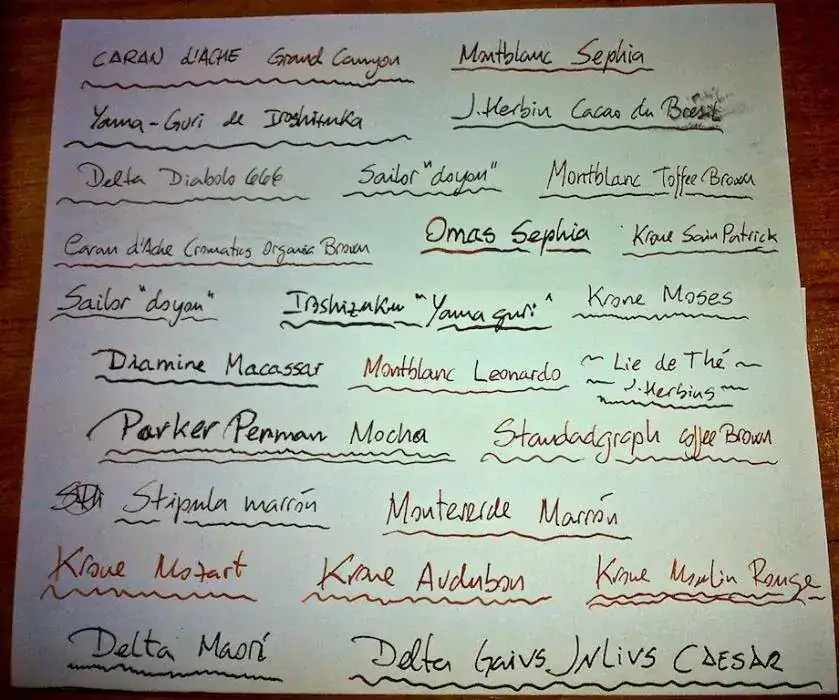 CARAN d'ACHE Grand Canyon Montblanc Sephia
Yama-Guri de Iroshizuka J.Herbin Cacao du Bresil
Delta Diabolo 666 Sailor "doyou" Montblanc Toffee Brown
Caran d'Ache Cromatics Organic Brown Omas Sephia Krone Sain Patrick
Sailor "doyou" Iroshizuku "Yama guri" Krone Moses
Diamine Macassar Montblanc Leonardo ~ Lie de Thé ~
~ J.Herbins ~
Parker Penman Mocha Standadgraph coffee Brown
Stipula marrón Monteverde Marrón
Krone Mozart Krone Audubon Krone Moulin Rouge
Delta Maorí Delta Gaivs JNLivs CAESAR